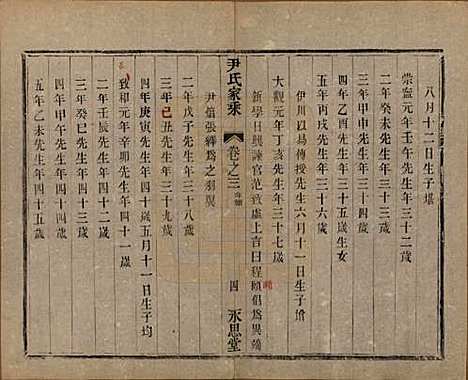 八月十二日生子堪
崇寧元年壬午先生年三十二歲
二年癸未先生年三十三歲
三年甲申先生年三十四歲
四年乙酉先生年三十五歲生女
五年丙戌先生年三十六歲
伊川以易傳授先生六月十一日生子
大觀元年丁亥先生年三十七歲
新學日興諫官范致虛上言曰程頤倡爲異端
尹氏家乘
卷之三
四
永思堂
尹焞張繹爲之羽翼
二年戊子先生年三十八歲
三年己丑先生年三十九歲
四年庚寅先生年四十歲五月十一日生子均
政和元年辛卯先生年四十一歲
二年壬辰先生年四十二歲
三年癸巳先生年四十三歲
四年甲午先生年四十四歲
五年乙未先生年四十五歲